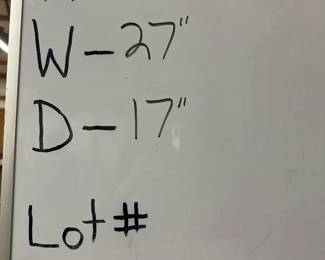 W-27"
D-17"
Lot#